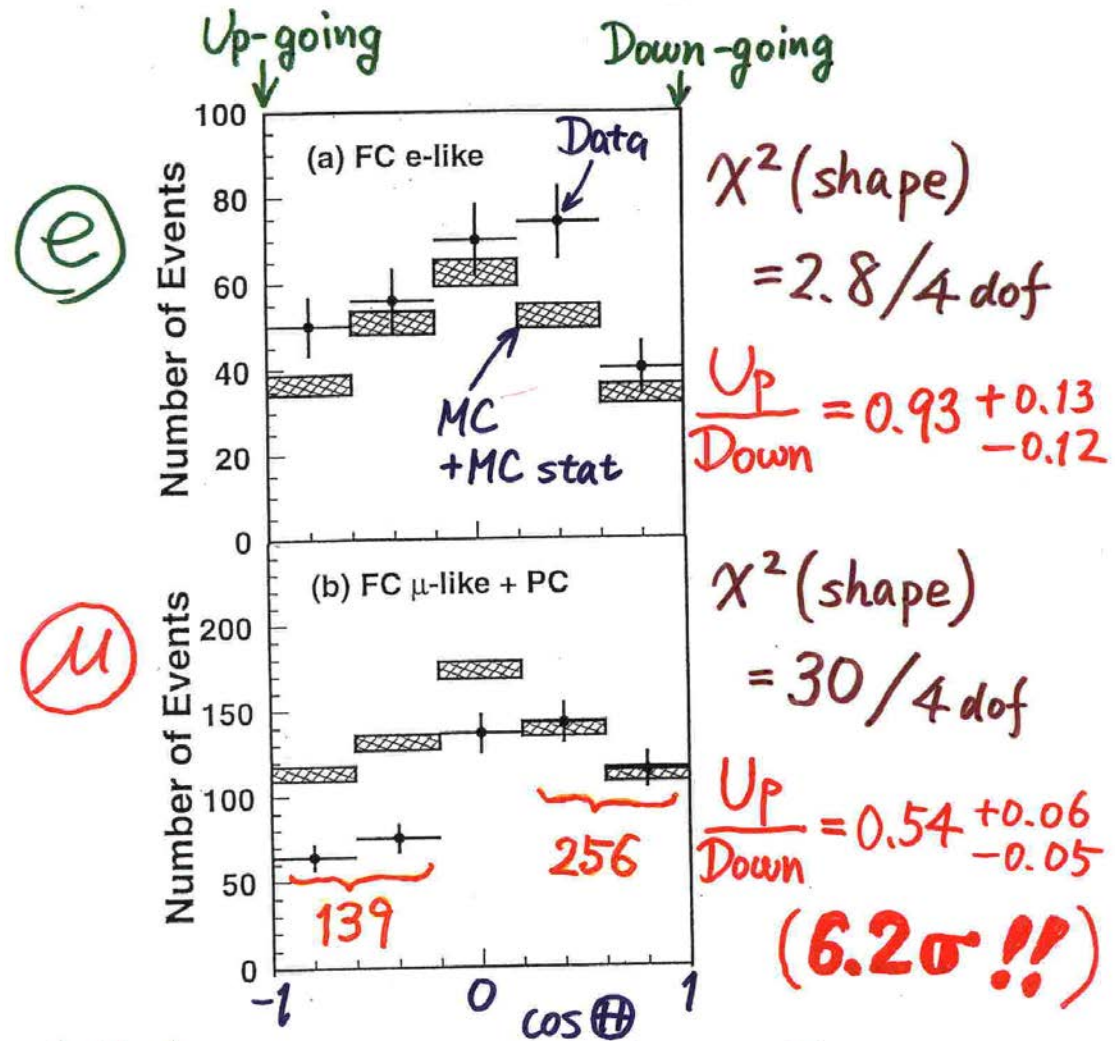 Up-going
Down-going
100
80
60
40
20
0
Number of Events
(a) FC e-like
Data
MC
+MC stat
e
χ² (shape)
= 2.8 / 4 dof
Up/Down = 0.93 +0.13 -0.12
200
150
100
50
0
Number of Events
(b) FC μ-like + PC
139
256
μ
χ² (shape)
= 30 / 4 dof
Up/Down = 0.54 +0.06 -0.05
(6.2σ !!)
-1
0
1
cos Θ